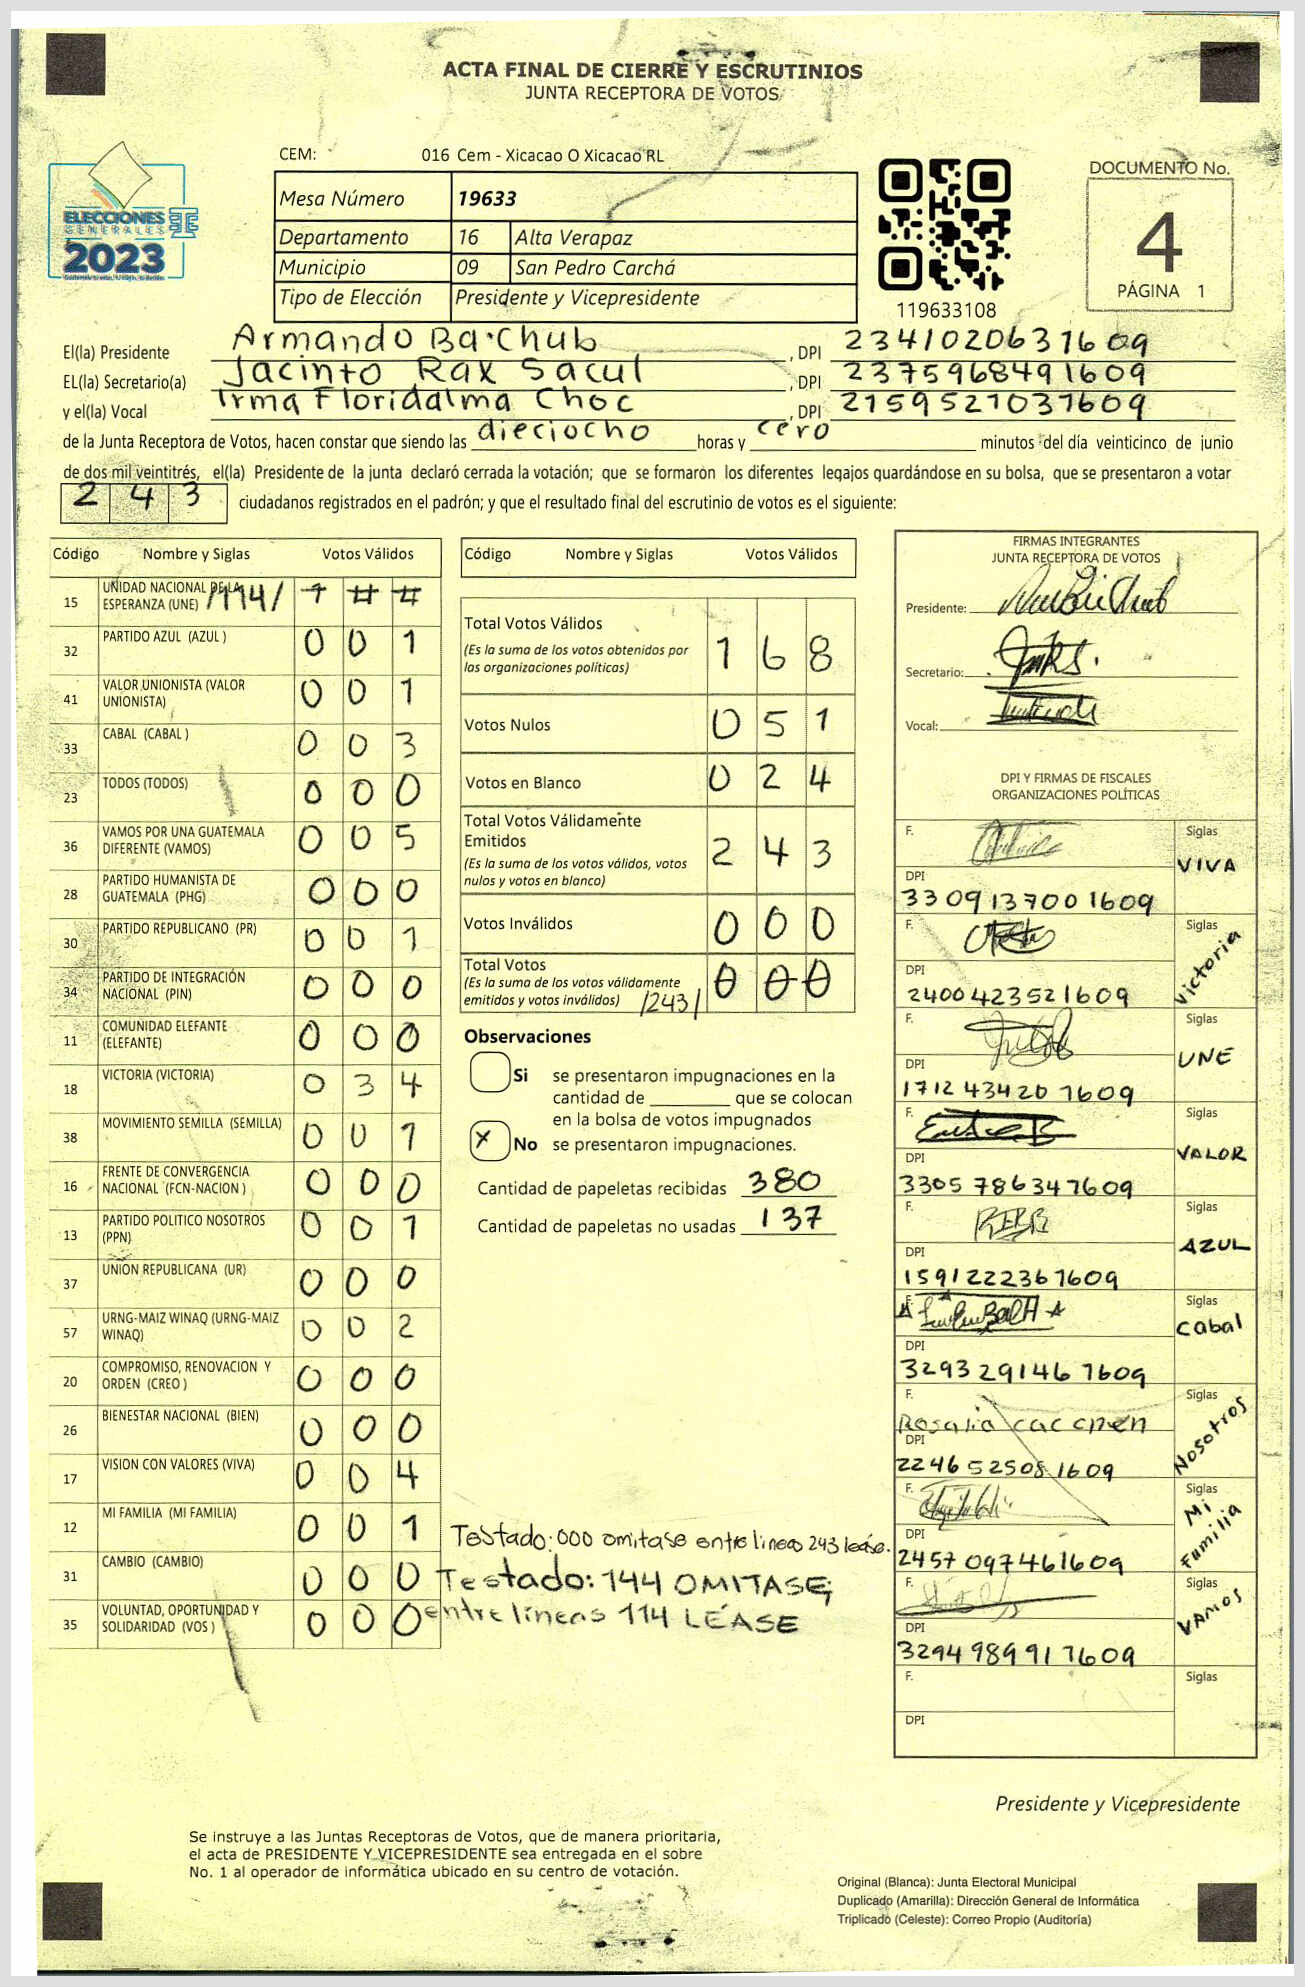 ACTA FINAL DE CIERRE Y ESCRUTINIOS
JUNTA RECEPTORA DE VOTOS
CEM: 016 Cem - Xicacao O Xicacao RL
ELECCIONES
GENERALES
2023
Mesa Número 19633
Departamento 16 Alta Verapaz
Municipio 09 San Pedro Carchá
Tipo de Elección Presidente y Vicepresidente
119633108
DOCUMENTO No.
4
PÁGINA 1
El(la) Presidente Armando Ba Chub , DPI 2341020631609
EL(la) Secretario(a) Jacinto Rax Sacul , DPI 2375968491609
y el(la) Vocal Irma Floridalma Choc , DPI 2159521031609
de la Junta Receptora de Votos, hacen constar que siendo las dieciocho horas y cero minutos del día veinticinco de junio
de dos mil veintitrés, el(la) Presidente de la junta declaró cerrada la votación; que se formaron los diferentes legajos quardándose en su bolsa, que se presentaron a votar
2 4 3 ciudadanos registrados en el padrón; y que el resultado final del escrutinio de votos es el siguiente:
Código Nombre y Siglas Votos Válidos
15 UNIDAD NACIONAL DE LA ESPERANZA (UNE) /114/
32 PARTIDO AZUL (AZUL ) 0 0 1
41 VALOR UNIONISTA (VALOR UNIONISTA) 0 0 1
33 CABAL (CABAL ) 0 0 3
23 TODOS (TODOS) 0 0 0
36 VAMOS POR UNA GUATEMALA DIFERENTE (VAMOS) 0 0 5
28 PARTIDO HUMANISTA DE GUATEMALA (PHG) 0 0 0
30 PARTIDO REPUBLICANO (PR) 0 0 1
34 PARTIDO DE INTEGRACIÓN NACIONAL (PIN) 0 0 0
11 COMUNIDAD ELEFANTE (ELEFANTE) 0 0 0
18 VICTORIA (VICTORIA) 0 3 4
38 MOVIMIENTO SEMILLA (SEMILLA) 0 0 1
16 FRENTE DE CONVERGENCIA NACIONAL (FCN-NACION ) 0 0 0
13 PARTIDO POLITICO NOSOTROS (PPN) 0 0 1
37 UNION REPUBLICANA (UR) 0 0 0
57 URNG-MAIZ WINAQ (URNG-MAIZ WINAQ) 0 0 2
20 COMPROMISO, RENOVACION Y ORDEN (CREO ) 0 0 0
26 BIENESTAR NACIONAL (BIEN) 0 0 0
17 VISION CON VALORES (VIVA) 0 0 4
12 MI FAMILIA (MI FAMILIA) 0 0 1
31 CAMBIO (CAMBIO) 0 0 0
35 VOLUNTAD, OPORTUNIDAD Y SOLIDARIDAD (VOS ) 0 0 0
Código Nombre y Siglas Votos Válidos
Total Votos Válidos
(Es la suma de los votos obtenidos por
las organizaciones políticas) 1 6 8
Votos Nulos 0 5 1
Votos en Blanco 0 2 4
Total Votos Válidamente
Emitidos
(Es la suma de los votos válidos, votos
nulos y votos en blanco) 2 4 3
Votos Inválidos 0 0 0
Total Votos
(Es la suma de los votos válidamente
emitidos y votos inválidos) /243/ 0 0 0
Observaciones
Si se presentaron impugnaciones en la
cantidad de ________ que se colocan
en la bolsa de votos impugnados
X No se presentaron impugnaciones.
Cantidad de papeletas recibidas 380
Cantidad de papeletas no usadas 137
Testado: 000 omitase entre lineas 243 lease.
Testado: 144 OMITASE;
entre líneas 114 LÉASE
FIRMAS INTEGRANTES
JUNTA RECEPTORA DE VOTOS
Presidente:
Secretario:
Vocal:
DPI Y FIRMAS DE FISCALES
ORGANIZACIONES POLÍTICAS
F. Siglas VIVA
DPI 3309137001609
F. Siglas Victoria
DPI 2400423521609
F. Siglas UNE
DPI 1712434207609
F. Siglas VALOR
DPI 3305786347609
F. Siglas AZUL
DPI 1591222361609
F. Siglas Cabal
DPI 3293291461609
F. Rosalia cac Siglas Nosotros
DPI 2246525081609
F. Siglas Mi Familia
DPI 2457097461609
F. Siglas VAMOS
DPI 3294989911609
F. Siglas
DPI
Presidente y Vicepresidente
Se instruye a las Juntas Receptoras de Votos, que de manera prioritaria,
el acta de PRESIDENTE Y VICEPRESIDENTE sea entregada en el sobre
No. 1 al operador de informática ubicado en su centro de votación.
Original (Blanca): Junta Electoral Municipal
Duplicado (Amarilla): Dirección General de Informática
Triplicado (Celeste): Correo Propio (Auditoría)